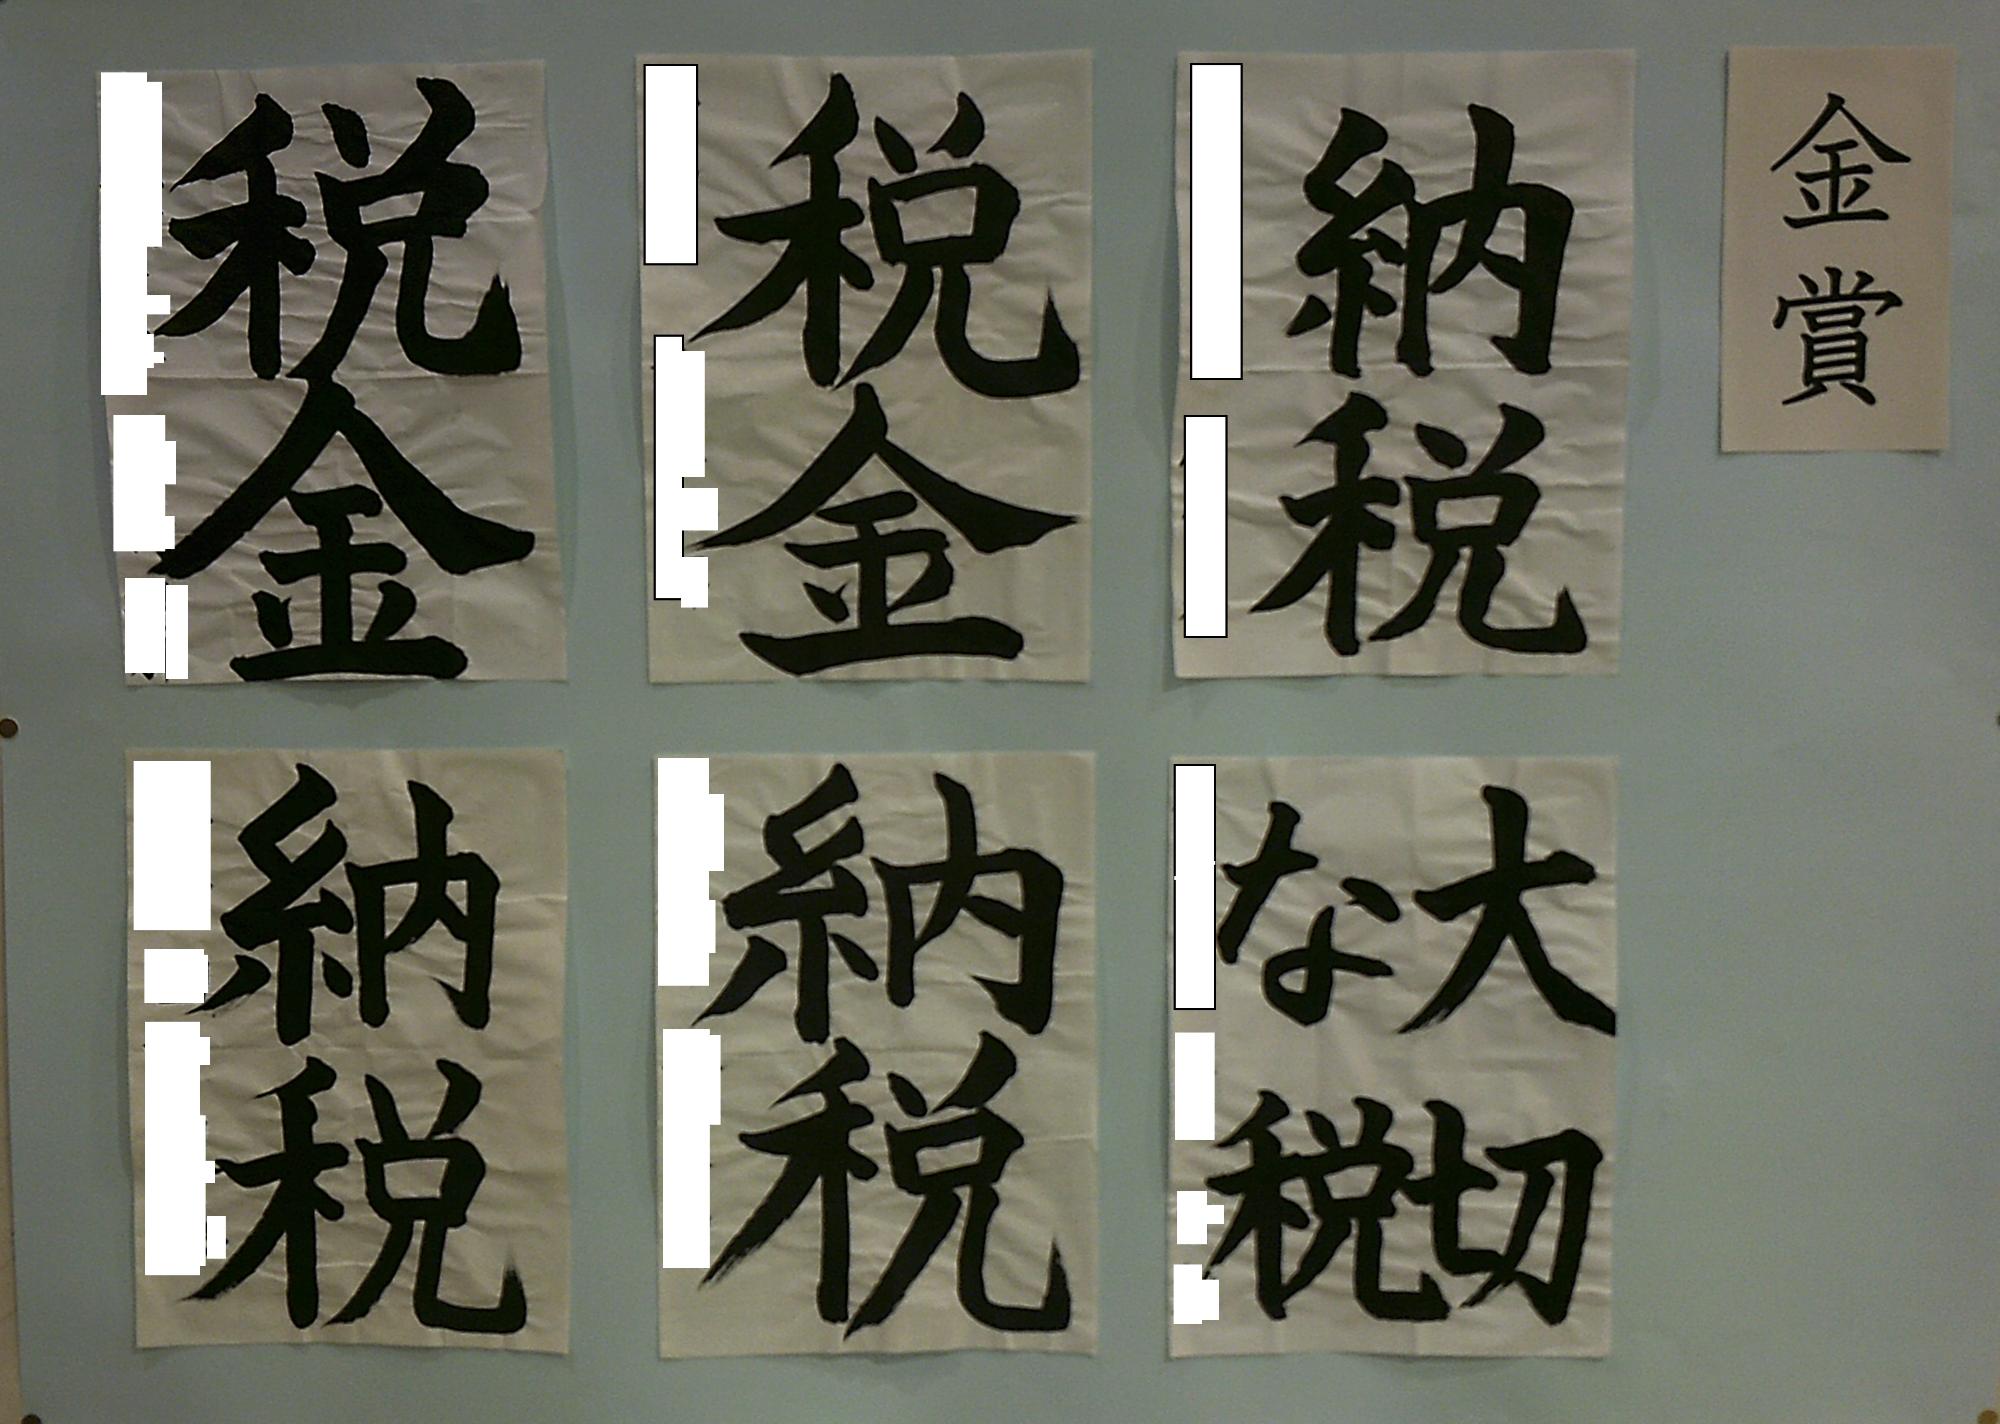 金賞
納税
税金
税金
大切
な税
納税
納税